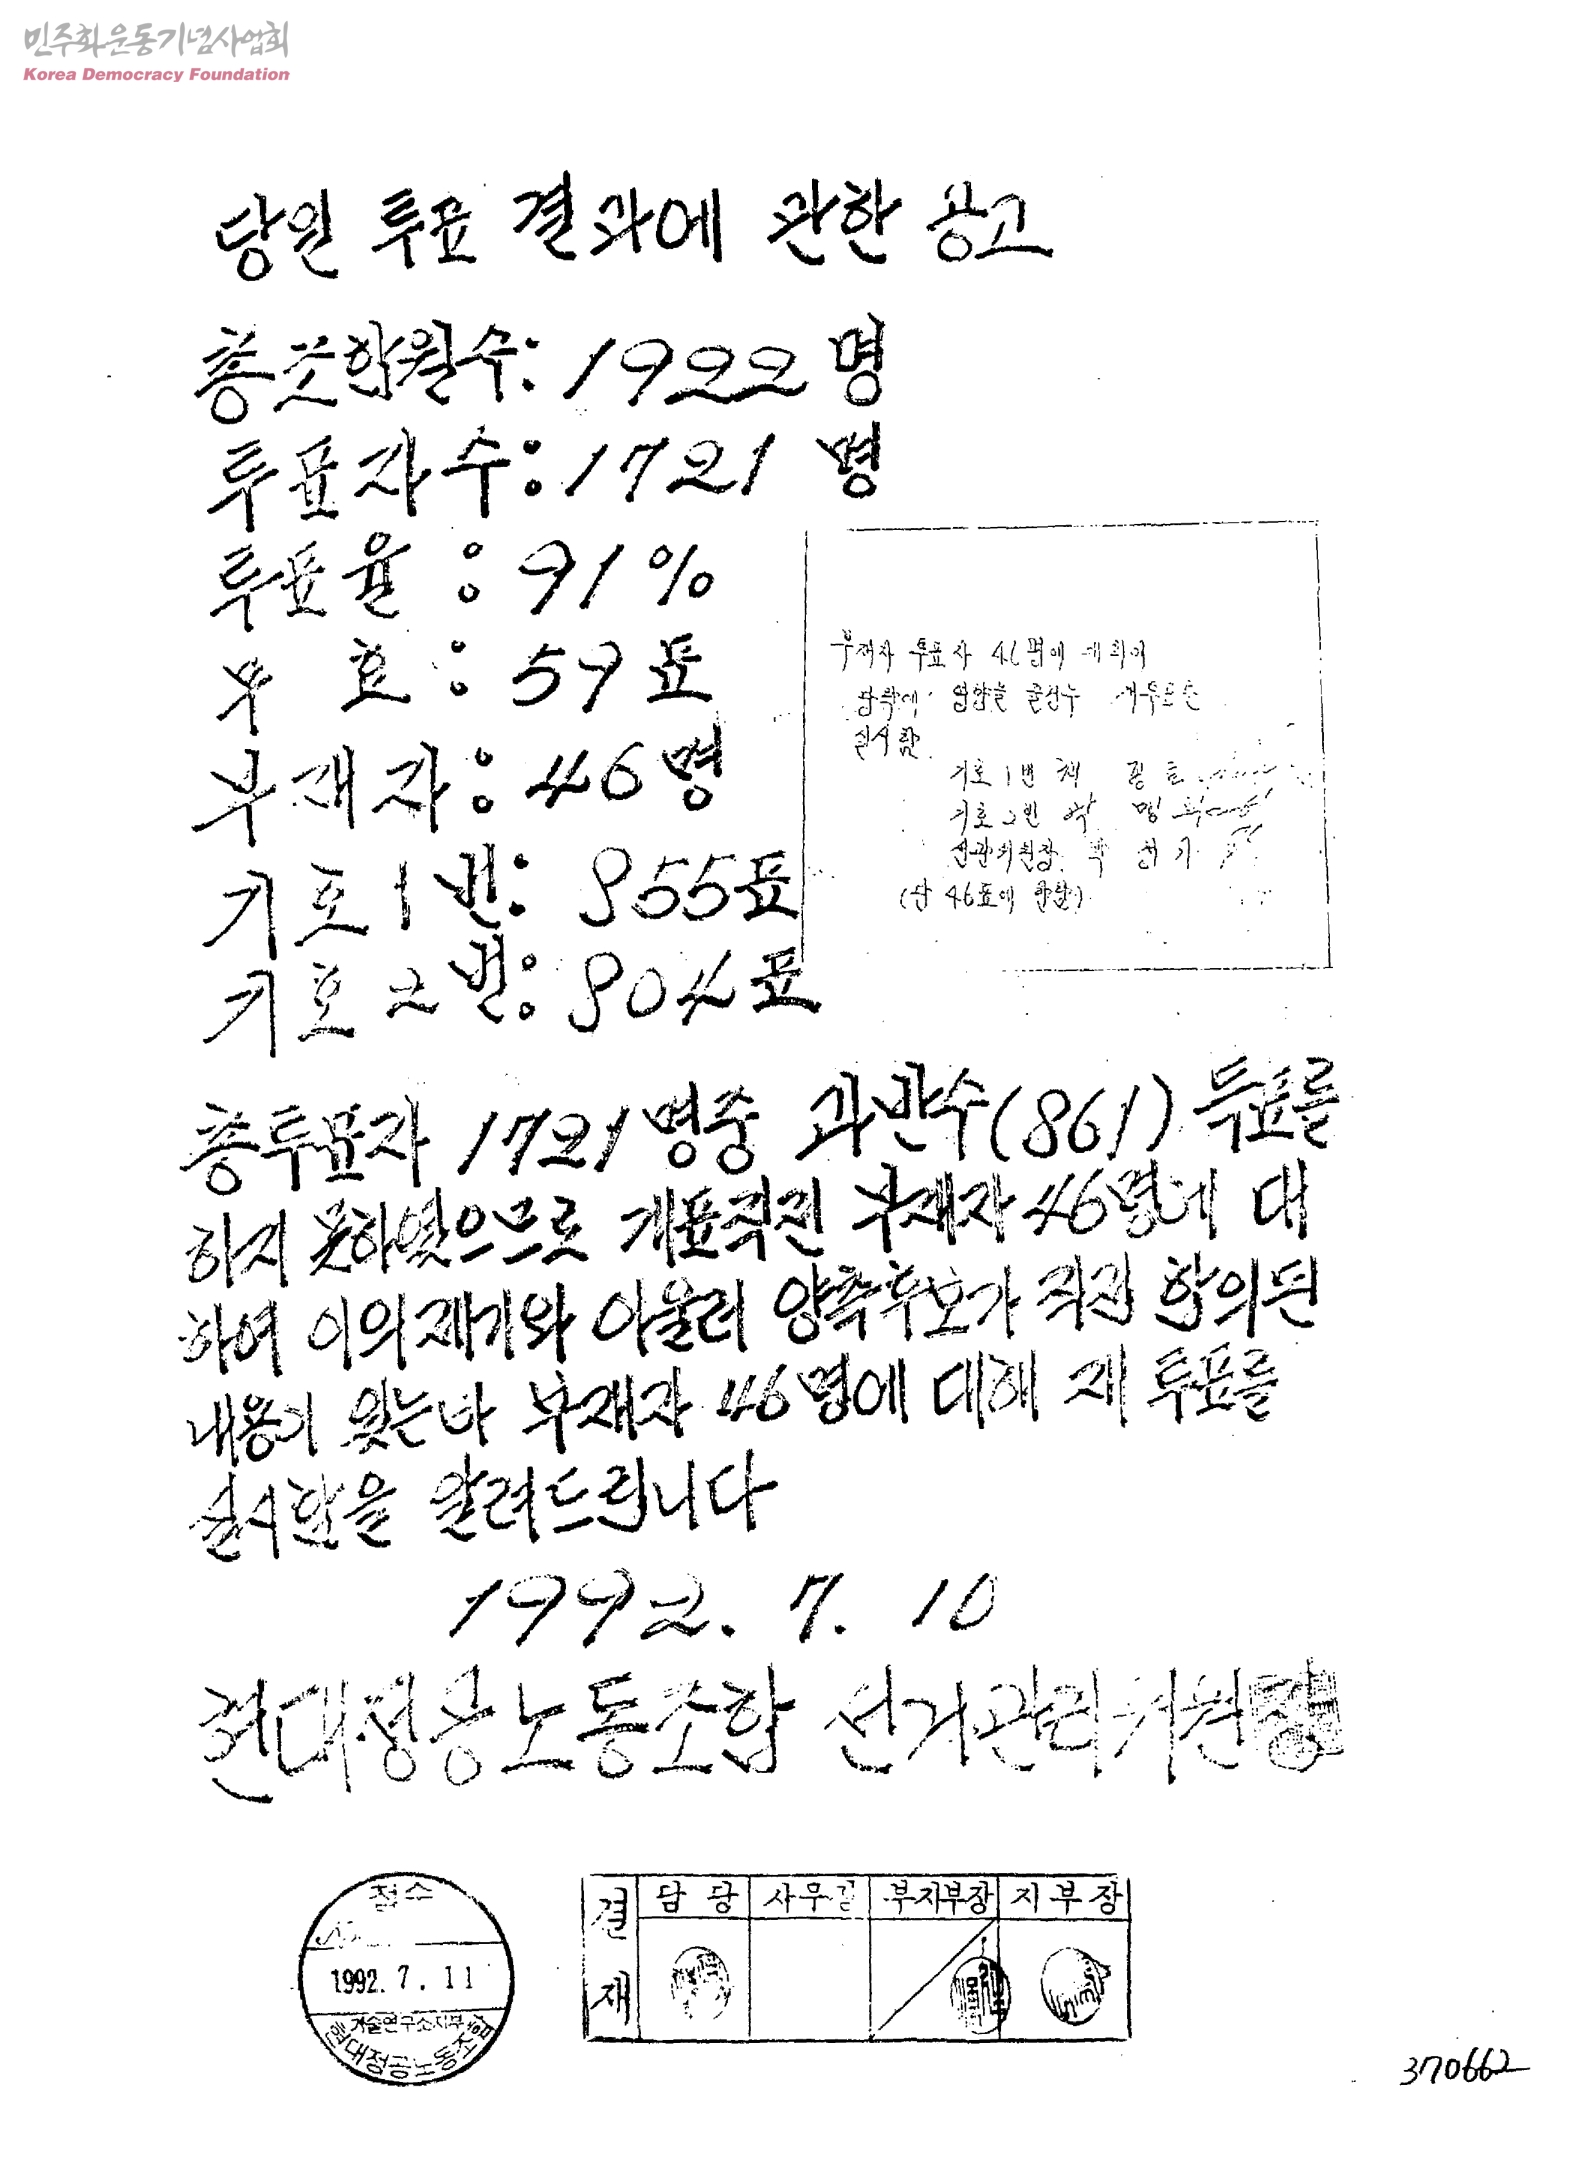 민주화운동기념사업회
Korea Democracy Foundation
당일 투표 결과에 관한 공고
총조합원수: 1922 명
투표자수: 1721 명
투표율 : 91%
무 효 : 59표
부재자: 46명
기호1번: 855표
기호2번: 804표
부재자 투표자 46명에 대하여
입함을 재투표를
실시함.
기호 1번
기호 2번
선관위원장
(단 46표에 한함)
총투표자 1721명중 과반수(861) 득표를
하지 못하였으므로 개표직전 부재자 46명에 대
하여 이의제기와 아울러 양측후보가 직접 합의된
내용이 있는바 부재자 46명에 대해 재 투표를
실시함을 알려드립니다
1992. 7. 10
현대정공노동조합 선거관리위원장
접수
1992. 7. 11
기술연구소지부
현대정공노동조합
결재
담당 사무길 부지부장 지부장
370662